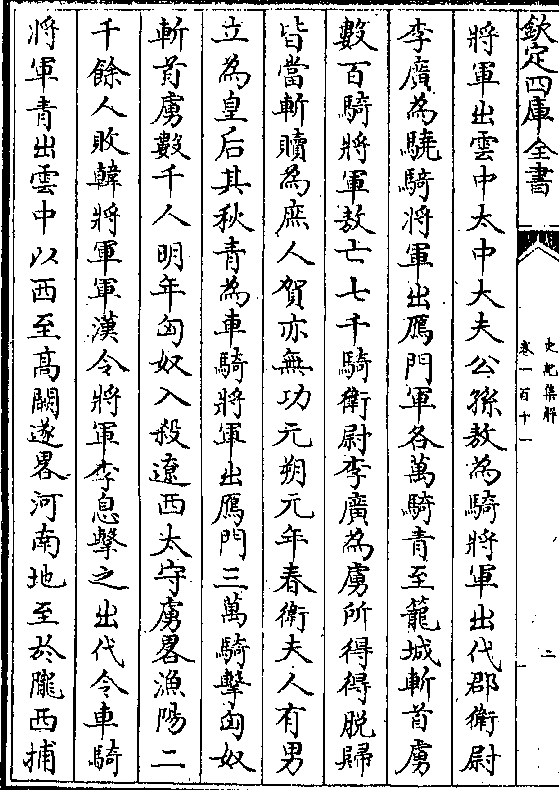 欽定四庫全書
史記集解
卷一百十一
二
將軍出雲中太中大夫公孫敖為騎將軍出代郡衛尉
李廣為驍騎將軍出鴈門軍各萬騎青至籠城斬首虜
數百騎將軍敖亡七千騎衛尉李廣為虜所得得脫歸
皆當斬贖為庶人賀亦無功元朔元年春衛夫人有男
立為皇后其秋青為車騎將軍出鴈門三萬騎擊匈奴
斬首虜數千人明年匈奴入殺遼西太守虜畧漁陽二
千餘人敗韓將軍軍漢令將軍李息擊之出代令車騎
將軍青出雲中以西至高闕遂畧河南地至於隴西捕